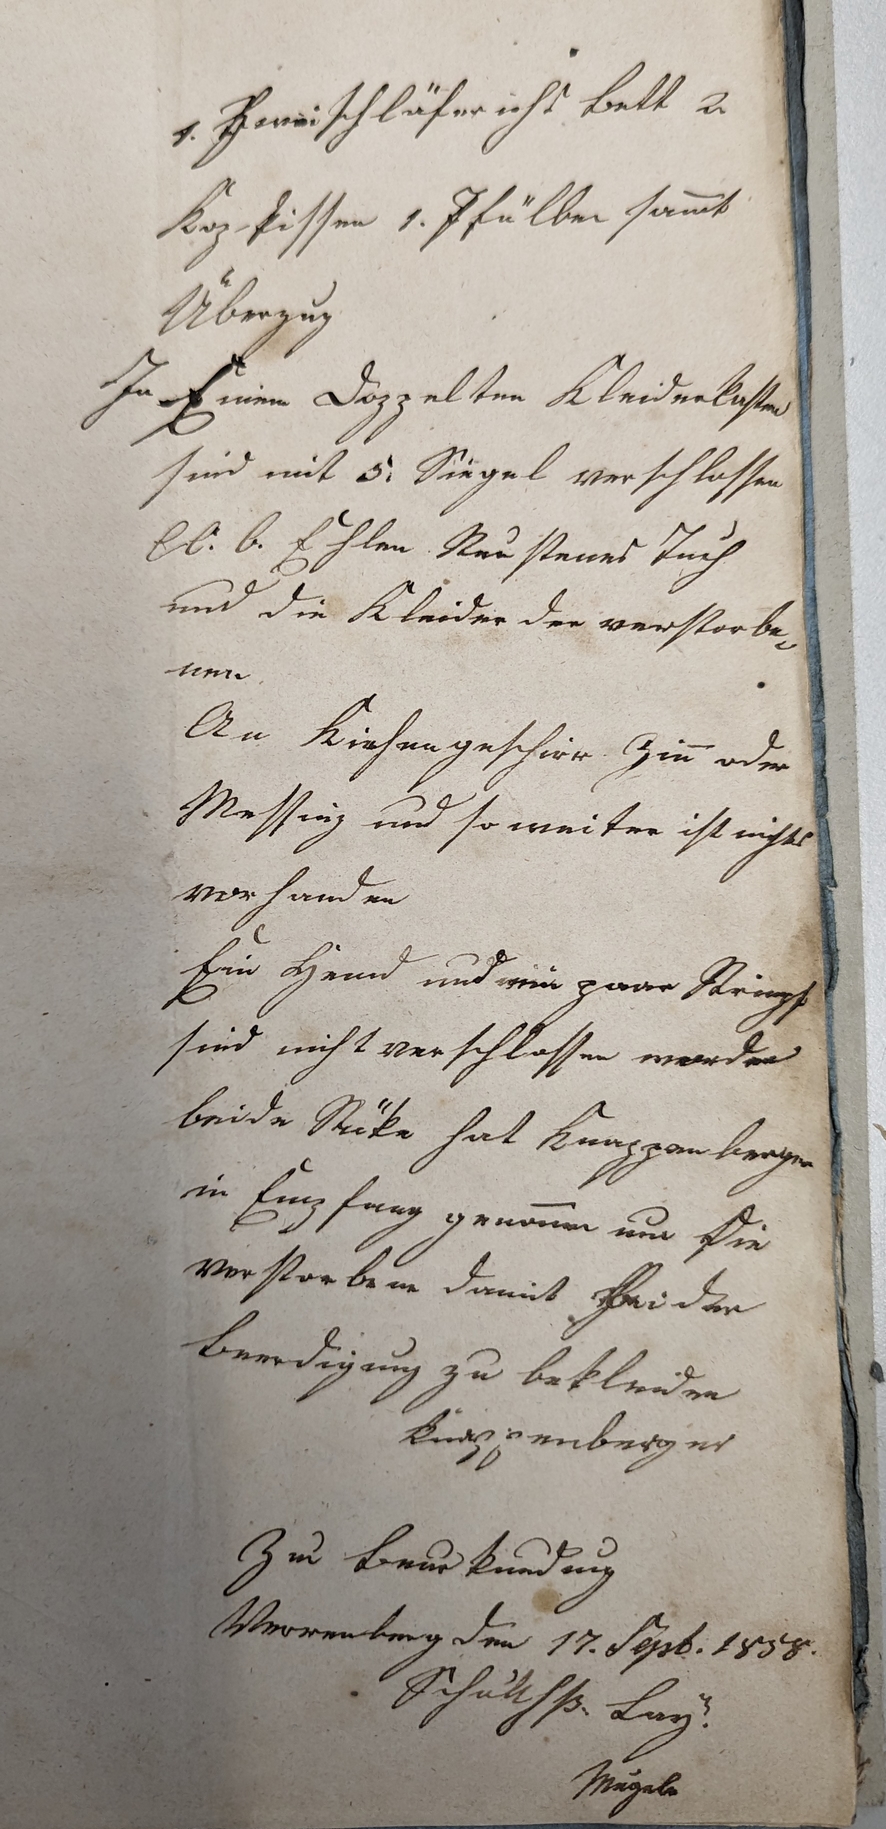 1. Zweischläferichs Bett 2
Kopfkissen 1. Pfülben sam̄t
Überzug
In Einem Doppelten Kleiderkasten
sind mit 5. Siegel verschlossen
6. Ehlen Reustenes Tuch
und die Kleider der verstorbe-
nen
An Kichengeschirr Zin̄ oder
Messing und so weiter ist nichts
vorhanden
Ein Hemd und ein paar Strimpf
sind nicht verschlossen worden
beide Stüke hat Knappenberger
in Empfang genom̄en um Die
verstorbene damit bei der
Beerdigung zu bekleiden
Knappenberger
Zur Beurkundung
Verrenberg den 17. Sept. 1858.
Schulthß. Lay.